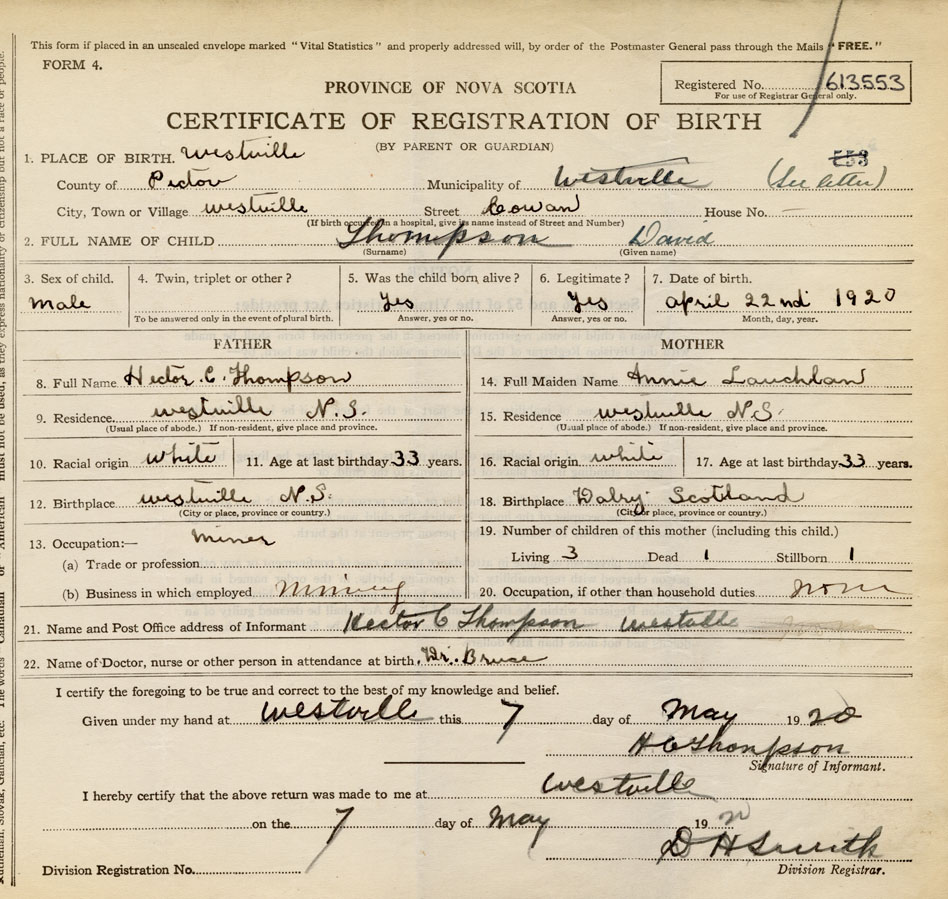 This form if placed in an unsealed envelope marked "Vital Statistics" and properly addressed will, by order of the Postmaster General pass through the Mails "FREE."
FORM 4.
Registered No. 613553
For use of Registrar General only.
PROVINCE OF NOVA SCOTIA
CERTIFICATE OF REGISTRATION OF BIRTH
(BY PARENT OR GUARDIAN)
1. PLACE OF BIRTH. Westville
553
County of Pictou Municipality of Westville (See letter)
City, Town or Village Westville Street Cowan House No. —
(If birth occurred in a hospital, give its name instead of Street and Number)
2. FULL NAME OF CHILD Thompson David
(Surname) (Given name)
3. Sex of child. 4. Twin, triplet or other? 5. Was the child born alive? 6. Legitimate? 7. Date of birth.
Male Yes Yes April 22nd 1920
To be answered only in the event of plural birth. Answer, yes or no. Answer, yes or no. Month, day, year.
FATHER MOTHER
8. Full Name Hector C. Thompson 14. Full Maiden Name Annie Lauchlan
9. Residence. Westville N.S. 15. Residence Westville N.S.
(Usual place of abode.) If non-resident, give place and province. (Usual place of abode.) If non-resident, give place and province.
10. Racial origin White 11. Age at last birthday 33 years. 16. Racial origin White 17. Age at last birthday 33 years.
12. Birthplace Westville N.S. 18. Birthplace Dalry Scotland
(City or place, province or country.) (City or place, province or country.)
13. Occupation:— Miner 19. Number of children of this mother (including this child.)
(a) Trade or profession Living 3 Dead 1 Stillborn 1
(b) Business in which employed Mining 20. Occupation, if other than household duties None
21. Name and Post Office address of Informant Hector C Thompson Westville
22. Name of Doctor, nurse or other person in attendance at birth. Dr. Bruce
I certify the foregoing to be true and correct to the best of my knowledge and belief.
Given under my hand at Westville this 7 day of May 1920
H C Thompson
Signature of Informant.
I hereby certify that the above return was made to me at Westville
on the 7 day of May 1920
D H Smith
Division Registration No. Division Registrar.